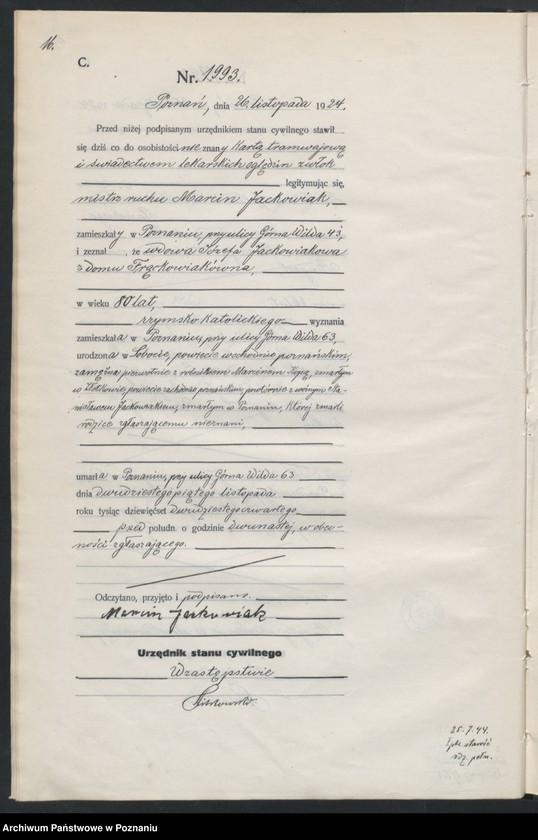 16.
C.
Nr. 1993.
Poznań, dnia 26. listopada 1924.
Przed niżej podpisanym urzędnikiem stanu cywilnego stawił
się dziś co do osobistości nieznany Kartą tramwajową
i świadectwem lekarskich oględzin zwłok
legitymując się,
mistrz ruchu Marcin Jackowiak,
zamieszkały w Poznaniu, przy ulicy Górna Wilda 43,
i zeznał, że wdowa Józefa Jackowiakowa
z domu Frąckowiakówna,
w wieku 80 lat,
rzymsko katolickiego wyznania
zamieszkała w Poznaniu, przy ulicy Górna Wilda 63,
urodzona w Sobocie, powiecie wschodnio poznańskim,
zamężna pierwotnie z robotnikiem Marcinem zmarłym
w powiecie zachodnio poznańskim, powtórnie z Sta-
nisławem Jackowiakiem, zmarłym w Poznaniu, której zmarli
rodzice zgłaszającemu nieznani,
umarła w Poznaniu, przy ulicy Górna Wilda 63
dnia dwudziestego piątego listopada
roku tysiąc dziewięćset dwudziestego czwartego
przed połudn. o godzinie dwunastej, w obec-
ności zgłaszającego.
Odczytano, przyjęto i podpisano.
Marcin Jackowiak
Urzędnik stanu cywilnego
W zastępstwie
25.7.44.
Archiwum Państwowe w Poznaniu